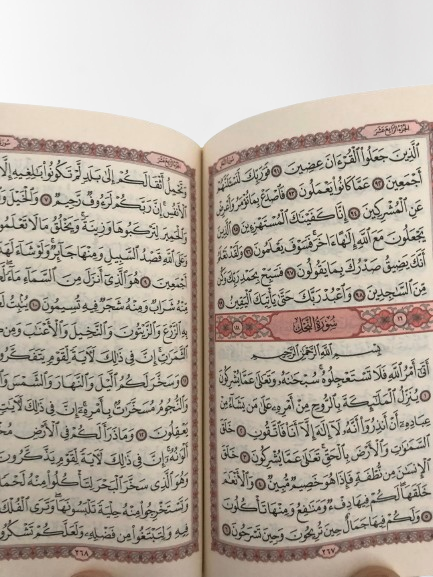 الجزء الرابع عشر
الَّذِينَ جَعَلُوا الْقُرْءَانَ عِضِينَ ٩١ فَوَرَبِّكَ لَنَسْـَٔلَنَّهُمْ
أَجْمَعِينَ ٩٢ عَمَّا كَانُوا يَعْمَلُونَ ٩٣ فَاصْدَعْ بِمَا تُؤْمَرُ وَأَعْرِضْ
عَنِ الْمُشْرِكِينَ ٩٤ إِنَّا كَفَيْنَاكَ الْمُسْتَهْزِءِينَ ٩٥ الَّذِينَ
يَجْعَلُونَ مَعَ اللَّهِ إِلَٰهًا ءَاخَرَ فَسَوْفَ يَعْلَمُونَ ٩٦ وَلَقَدْ نَعْلَمُ
أَنَّكَ يَضِيقُ صَدْرُكَ بِمَا يَقُولُونَ ٩٧ فَسَبِّحْ بِحَمْدِ رَبِّكَ وَكُن
مِّنَ السَّاجِدِينَ ٩٨ وَاعْبُدْ رَبَّكَ حَتَّىٰ يَأْتِيَكَ الْيَقِينُ ٩٩
سُورَةُ النَّحْلِ
بِسْمِ اللَّهِ الرَّحْمَٰنِ الرَّحِيمِ
أَتَىٰ أَمْرُ اللَّهِ فَلَا تَسْتَعْجِلُوهُ سُبْحَانَهُ وَتَعَالَىٰ عَمَّا يُشْرِكُونَ
١ يُنَزِّلُ الْمَلَائِكَةَ بِالرُّوحِ مِنْ أَمْرِهِ عَلَىٰ مَن يَشَاءُ مِنْ
عِبَادِهِ أَنْ أَنذِرُوا أَنَّهُ لَا إِلَٰهَ إِلَّا أَنَا فَاتَّقُونِ ٢ خَلَقَ
السَّمَاوَاتِ وَالْأَرْضَ بِالْحَقِّ تَعَالَىٰ عَمَّا يُشْرِكُونَ ٣ خَلَقَ
الْإِنسَانَ مِن نُّطْفَةٍ فَإِذَا هُوَ خَصِيمٌ مُّبِينٌ ٤ وَالْأَنْعَامَ
خَلَقَهَا لَكُمْ فِيهَا دِفْءٌ وَمَنَافِعُ وَمِنْهَا تَأْكُلُونَ
٥ وَلَكُمْ فِيهَا جَمَالٌ حِينَ تُرِيحُونَ وَحِينَ تَسْرَحُونَ ٦
٢٦٧
وَتَحْمِلُ أَثْقَالَكُمْ إِلَىٰ بَلَدٍ لَّمْ تَكُونُوا بَالِغِيهِ إِلَّا
الْأَنفُسِ إِنَّ رَبَّكُمْ لَرَءُوفٌ رَّحِيمٌ ٧ وَالْخَيْلَ
وَالْحَمِيرَ لِتَرْكَبُوهَا وَزِينَةً وَيَخْلُقُ مَا لَا تَعْلَمُونَ
اللَّهِ قَصْدُ السَّبِيلِ وَمِنْهَا جَائِرٌ وَلَوْ شَاءَ
أَجْمَعِينَ ٩ هُوَ الَّذِي أَنزَلَ مِنَ السَّمَاءِ مَاءً
مِّنْهُ شَرَابٌ وَمِنْهُ شَجَرٌ فِيهِ تُسِيمُونَ ١٠ يُنبِتُ
بِهِ الزَّرْعَ وَالزَّيْتُونَ وَالنَّخِيلَ وَالْأَعْنَابَ وَمِن
الثَّمَرَاتِ إِنَّ فِي ذَٰلِكَ لَآيَةً لِّقَوْمٍ يَتَفَكَّرُونَ
١١ وَسَخَّرَ لَكُمُ الَّيْلَ وَالنَّهَارَ وَالشَّمْسَ
وَالنُّجُومُ مُسَخَّرَاتٌ بِأَمْرِهِ إِنَّ فِي ذَٰلِكَ لَآيَاتٍ
يَعْقِلُونَ ١٢ وَمَا ذَرَأَ لَكُمْ فِي الْأَرْضِ
أَلْوَانُهُ إِنَّ فِي ذَٰلِكَ لَآيَةً لِّقَوْمٍ يَذَّكَّرُونَ
وَهُوَ الَّذِي سَخَّرَ الْبَحْرَ لِتَأْكُلُوا مِنْهُ لَحْمًا
وَتَسْتَخْرِجُوا مِنْهُ حِلْيَةً تَلْبَسُونَهَا وَتَرَى الْفُلْكَ
فِيهِ وَلِتَبْتَغُوا مِن فَضْلِهِ وَلَعَلَّكُمْ تَشْكُرُونَ
٢٦٨